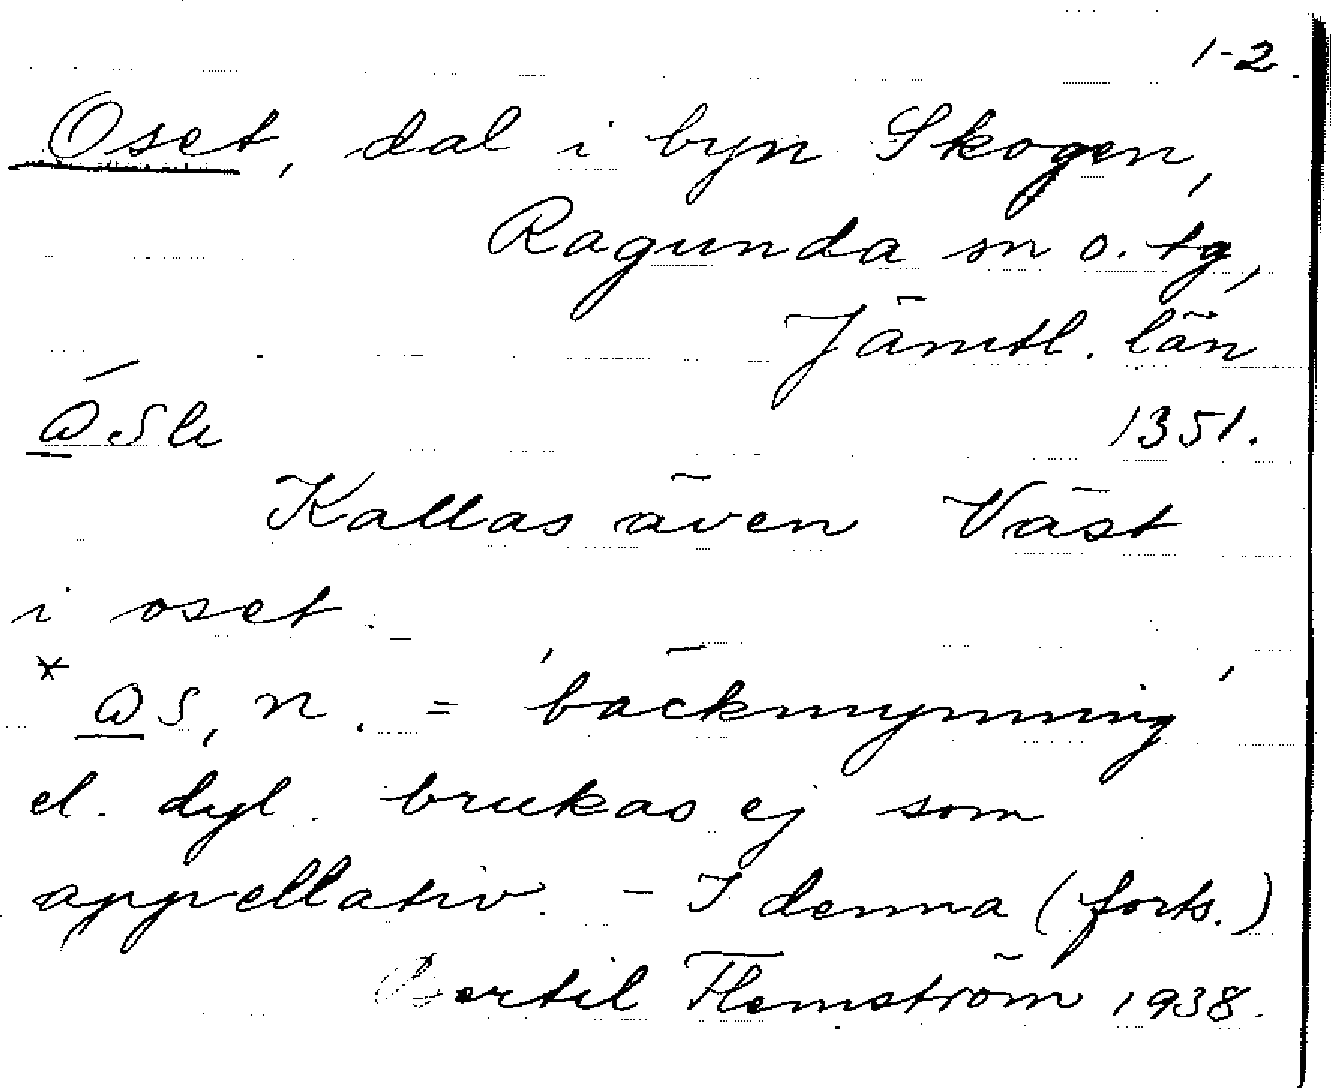 1-2.
Oset, dal i byn Skogen,
Ragunda sn o. tg,
Jämtl. län
1351.
Kallas även Väst
i oset.
n. = 'bäckmynning'
el. dyl. brukas ej som
appellativ. - I denna (forts.)
Bertil Flemström 1938.